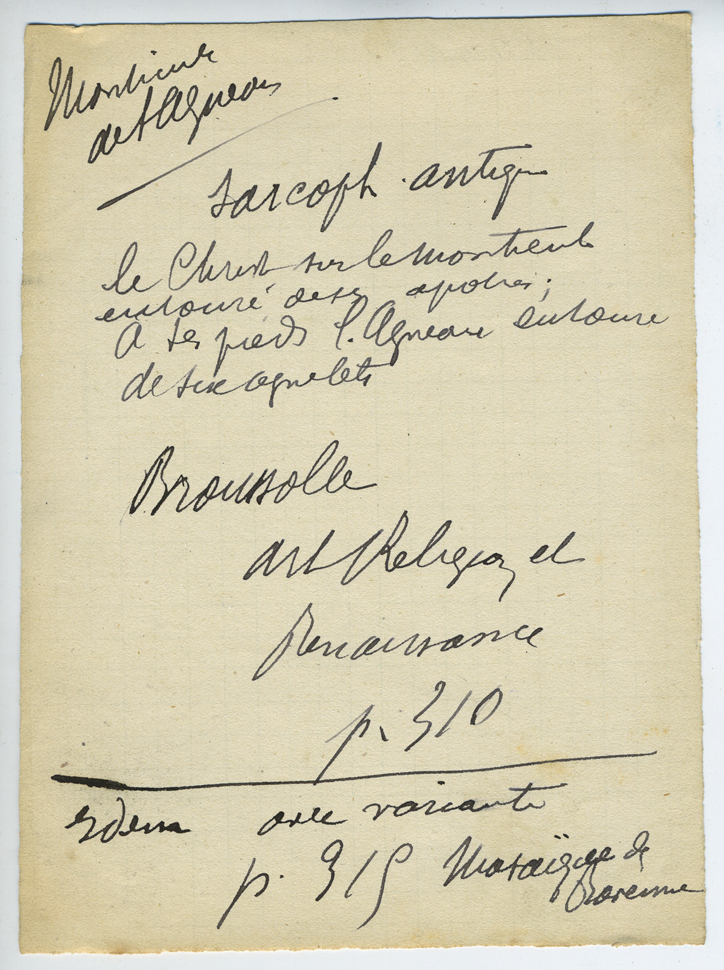 Monticule
de l'Agneau
Sarcoph. antique
le Christ sur le monticule
entouré de six apotres;
A ses pieds l'Agneau entouré
de six agnelets
Broussolle
art Religion et
Renaissance
p. 310
Idem avec variante
p. 315 Mosaïque de
Ravenne